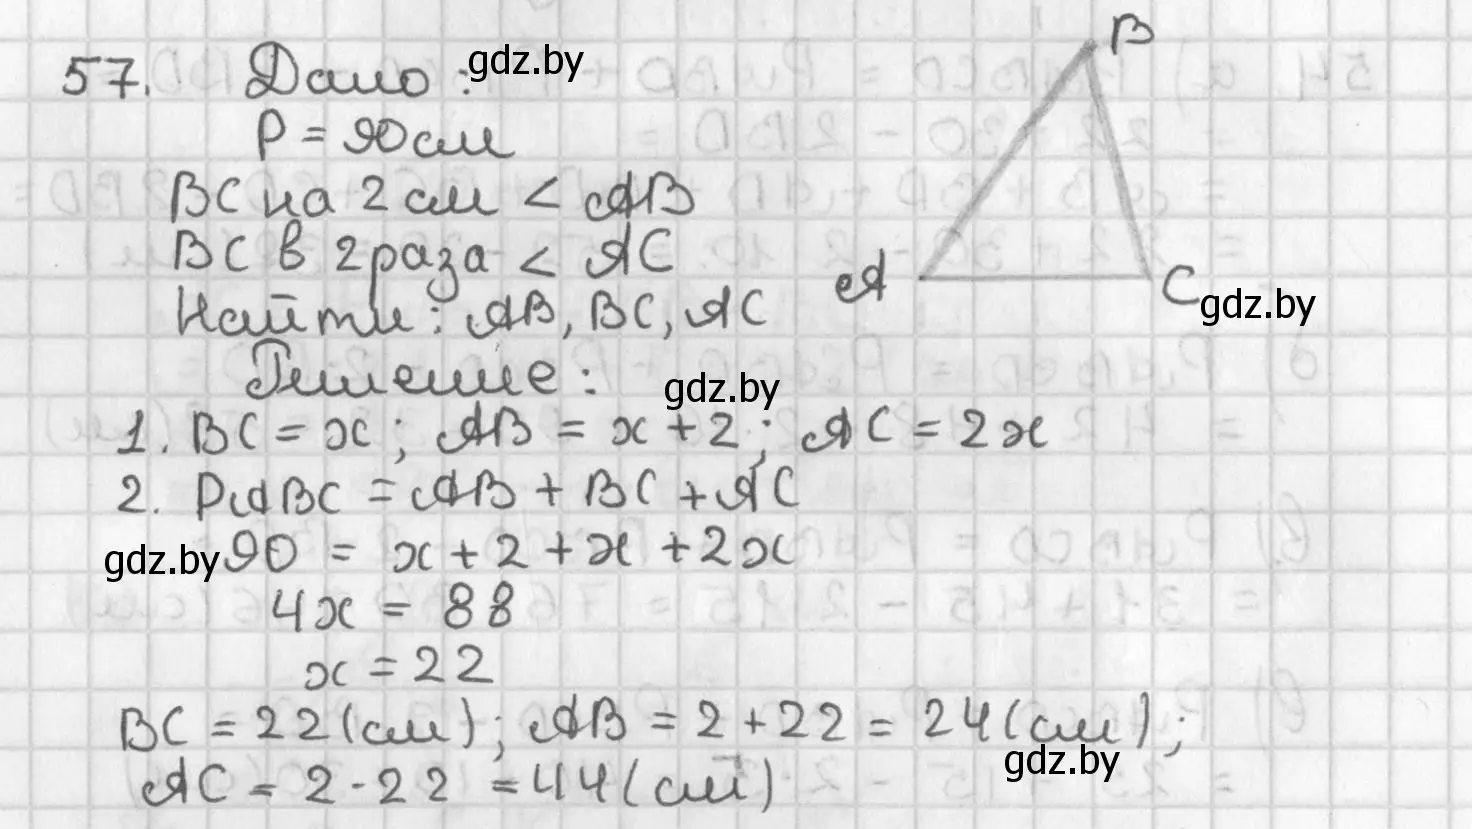 57. Дано:
gdz.by
P = 90 см
BC на 2 см < AB
BC в 2 раза < AC
Найти: AB, BC, AC
B
A
C
gdz.by
Решение:
gdz.by
1. BC = x; AB = x + 2; AC = 2x
2. PABC = AB + BC + AC
gdz.by
90 = x + 2 + x + 2x
4x = 88
x = 22
BC = 22 (см); AB = 2 + 22 = 24 (см);
gdz.by
AC = 2 · 22 = 44 (см)